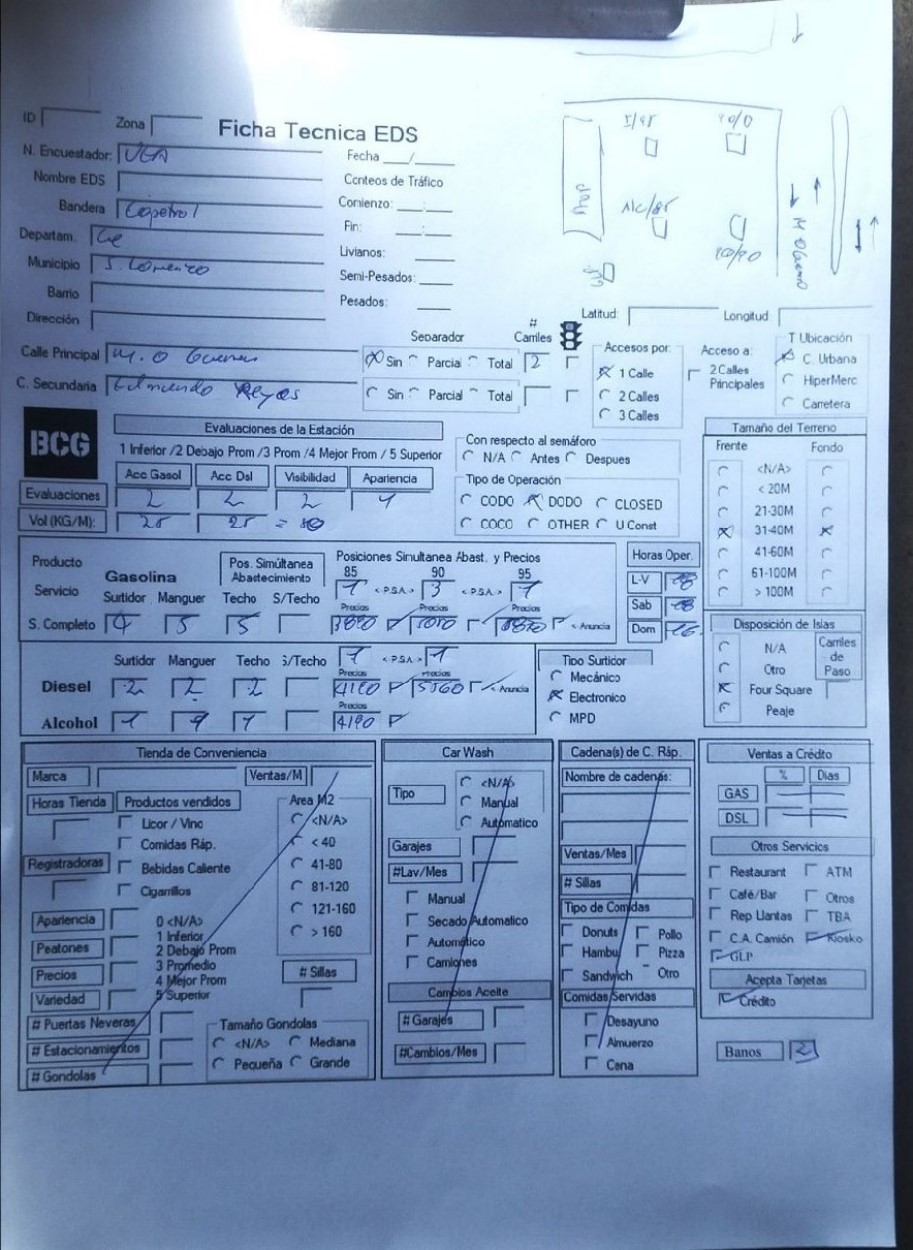 ID Zona Ficha Tecnica EDS
N. Encuestador: Fecha __/____
Nombre EDS Conteos de Tráfico
Bandera Copetrol Comienzo: __:__
Departam. Ce Fin: __:__
Municipio S. Lorenzo Livianos:
Semi-Pesados:
Barrio Pesados:
Dirección
Latitud: Longitud
Calle Principal M. O Guemes
Separador # Carriles
Sin Parcial Total 2
C. Secundaria Edmundo Reyes
Sin Parcial Total
Accesos por:
1 Calle
2 Calles
3 Calles
Acceso a:
2 Calles Principales
T Ubicación
C. Urbana
HiperMerc
Carretera
BCG
Evaluaciones de la Estación
1 Inferior /2 Debajo Prom /3 Prom /4 Mejor Prom / 5 Superior
Acc Gasol Acc Dsl Visibilidad Apariencia
Evaluaciones 2 2 2 4
Vol (KG/M): 25 25 =
Con respecto al semáforo
N/A Antes Despues
Tipo de Operación
CODO DODO CLOSED
COCO OTHER U Const
Tamaño del Terreno
Frente Fondo
<N/A>
< 20M
21-30M
31-40M
41-60M
61-100M
> 100M
Producto
Servicio
Gasolina
Pos. Simúltanea Abastecimiento
Posiciones Simultanea Abast. y Precios
85 90 95
1 < P.S.A. > 3 < P.S.A. > 1
Surtidor Manguer Techo S/Techo
Precios Precios Precios
S. Completo 4 5 5 < Anuncia
Horas Oper.
L-V 18
Sab 18
Dom 16
Disposición de Islas
N/A
Otro
Four Square
Peaje
Carriles de Paso
Surtidor Manguer Techo S/Techo 1 < P.S.A. > 1
Precios Precios
Diesel 2 2 2 4190 5560 < Anuncia
Precios
Alcohol 1 1 4190
Tipo Surticor
Mecánico
Electronico
MPD
Tienda de Conveniencia
Marca Ventas/M
Horas Tienda Productos vendidos
Licor / Vino
Comidas Ráp.
Registradoras
Bebidas Caliente
Cigarrillos
Area M2
<N/A>
< 40
41-80
81-120
121-160
> 160
Apariencia
Peatones
Precios
Variedad
0 <N/A>
1 Inferior
2 Debajo Prom
3 Promedio
4 Mejor Prom
5 Superior
# Sillas
# Puertas Neveras
# Estacionamientos
# Gondolas
Tamaño Gondolas
<N/A> Mediana
Pequeña Grande
Car Wash
Tipo
<N/A>
Manual
Automatico
Garajes
#Lav/Mes
Manual
Secado Automatico
Automático
Camiones
Cambios Aceite
# Garajes
#Cambios/Mes
Cadena(s) de C. Ráp.
Nombre de cadenas:
Ventas/Mes
# Sillas
Tipo de Comidas
Donuts Pollo
Hambu Pizza
Sandwich Otro
Comidas Servidas
Desayuno
Almuerzo
Cena
Ventas a Crédito
% Dias
GAS
DSL
Otros Servicios
Restaurant ATM
Café/Bar Otros
Rep Llantas TBA
C.A. Camión Kiosko
GLP
Acepta Tarjetas
Crédito
Banos 2